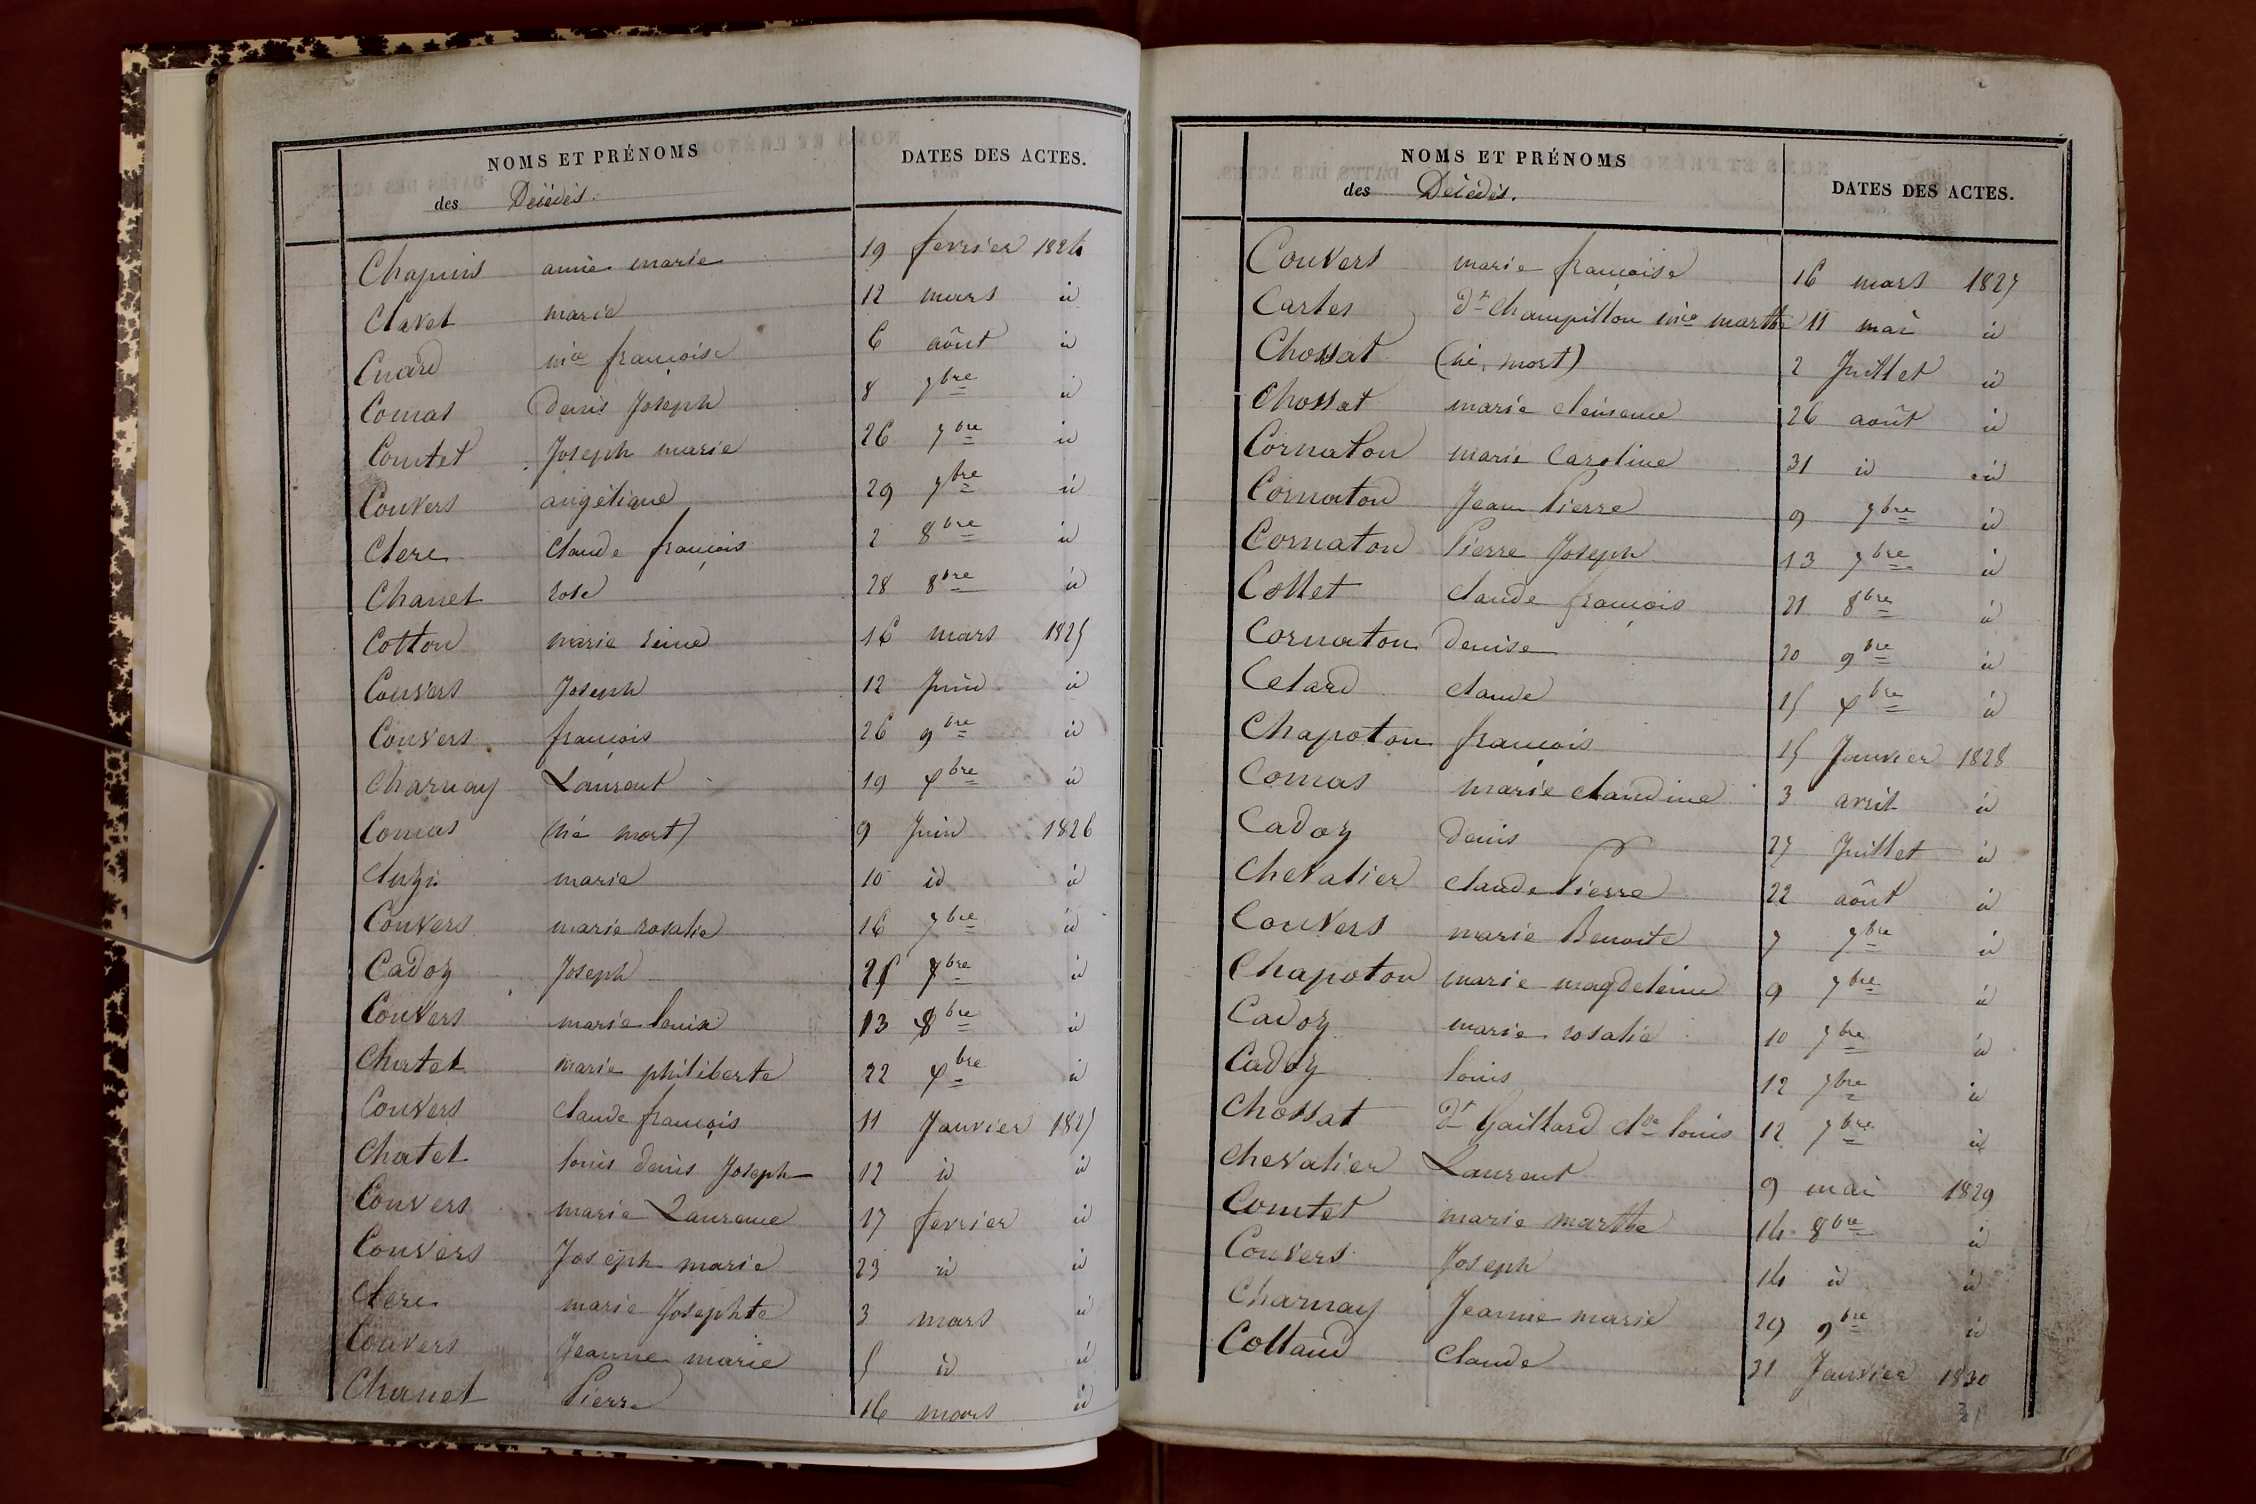 NOMS ET PRÉNOMS
des Décédés.
DATES DES ACTES.
Chapuis anne marie 19 fevrier 1824
Clavel marie 12 mars id
Cuard mie françoise 6 août id
Comas Denis Joseph 8 7bre id
Comtet Joseph marie 26 7bre id
Convers angélique 29 7bre id
Clerc Claude françois 2 8bre id
Chanel rose 28 8bre id
Cotton marie reine 16 mars 1825
Convers Joseph 12 Juin id
Convers françois 26 9bre id
Charnay Laurent 19 Xbre id
Comas (né mort) 9 Juin 1826
marie 10 id id
Convers marie rosalie 16 7bre id
Cadoz Joseph 25 7bre id
Convers marie louise 13 8bre id
Chatel marie philiberte 22 Xbre id
Convers Claude françois 11 Janvier 1827
Chatel louis denis Joseph 12 id id
Convers marie Laurence 17 fevrier id
Convers Joseph marie 23 id id
Clerc marie Josephte 3 mars id
Convers Jeanne marie 5 id id
Chanel Pierre 16 mars id
NOMS ET PRÉNOMS
des Décédés.
DATES DES ACTES.
Convers marie françoise 16 mars 1827
Carles dt Champillon mie marthe 11 mai id
Chossat (né mort) 2 Juillet id
Chossat marie clémence 26 août id
Cornaton marie Caroline 31 id id
Cornaton Jean Pierre 9 7bre id
Cornaton Pierre Joseph 13 7bre id
Collet claude françois 21 8bre id
Cornaton denise 20 9bre id
Celard claude 15 Xbre id
Chapoton françois 15 Janvier 1828
Comas marie claudine 3 avril id
Cadoz denis 27 Juillet id
Chevalier claude Pierre 22 août id
Convers marie Benoite 7 7bre id
Chapoton marie magdeleine 9 7bre id
Cadoz marie rosalie 10 7bre id
Cadoz louis 12 7bre id
Chossat dt Gaillard cde louis 12 7bre id
Chevalier Laurent 9 mai 1829
Comtet marie marthe 14 8bre id
Convers Joseph 14 id id
Charnay Jeanne marie 29 9bre id
Collaud Claude 31 Janvier 1830